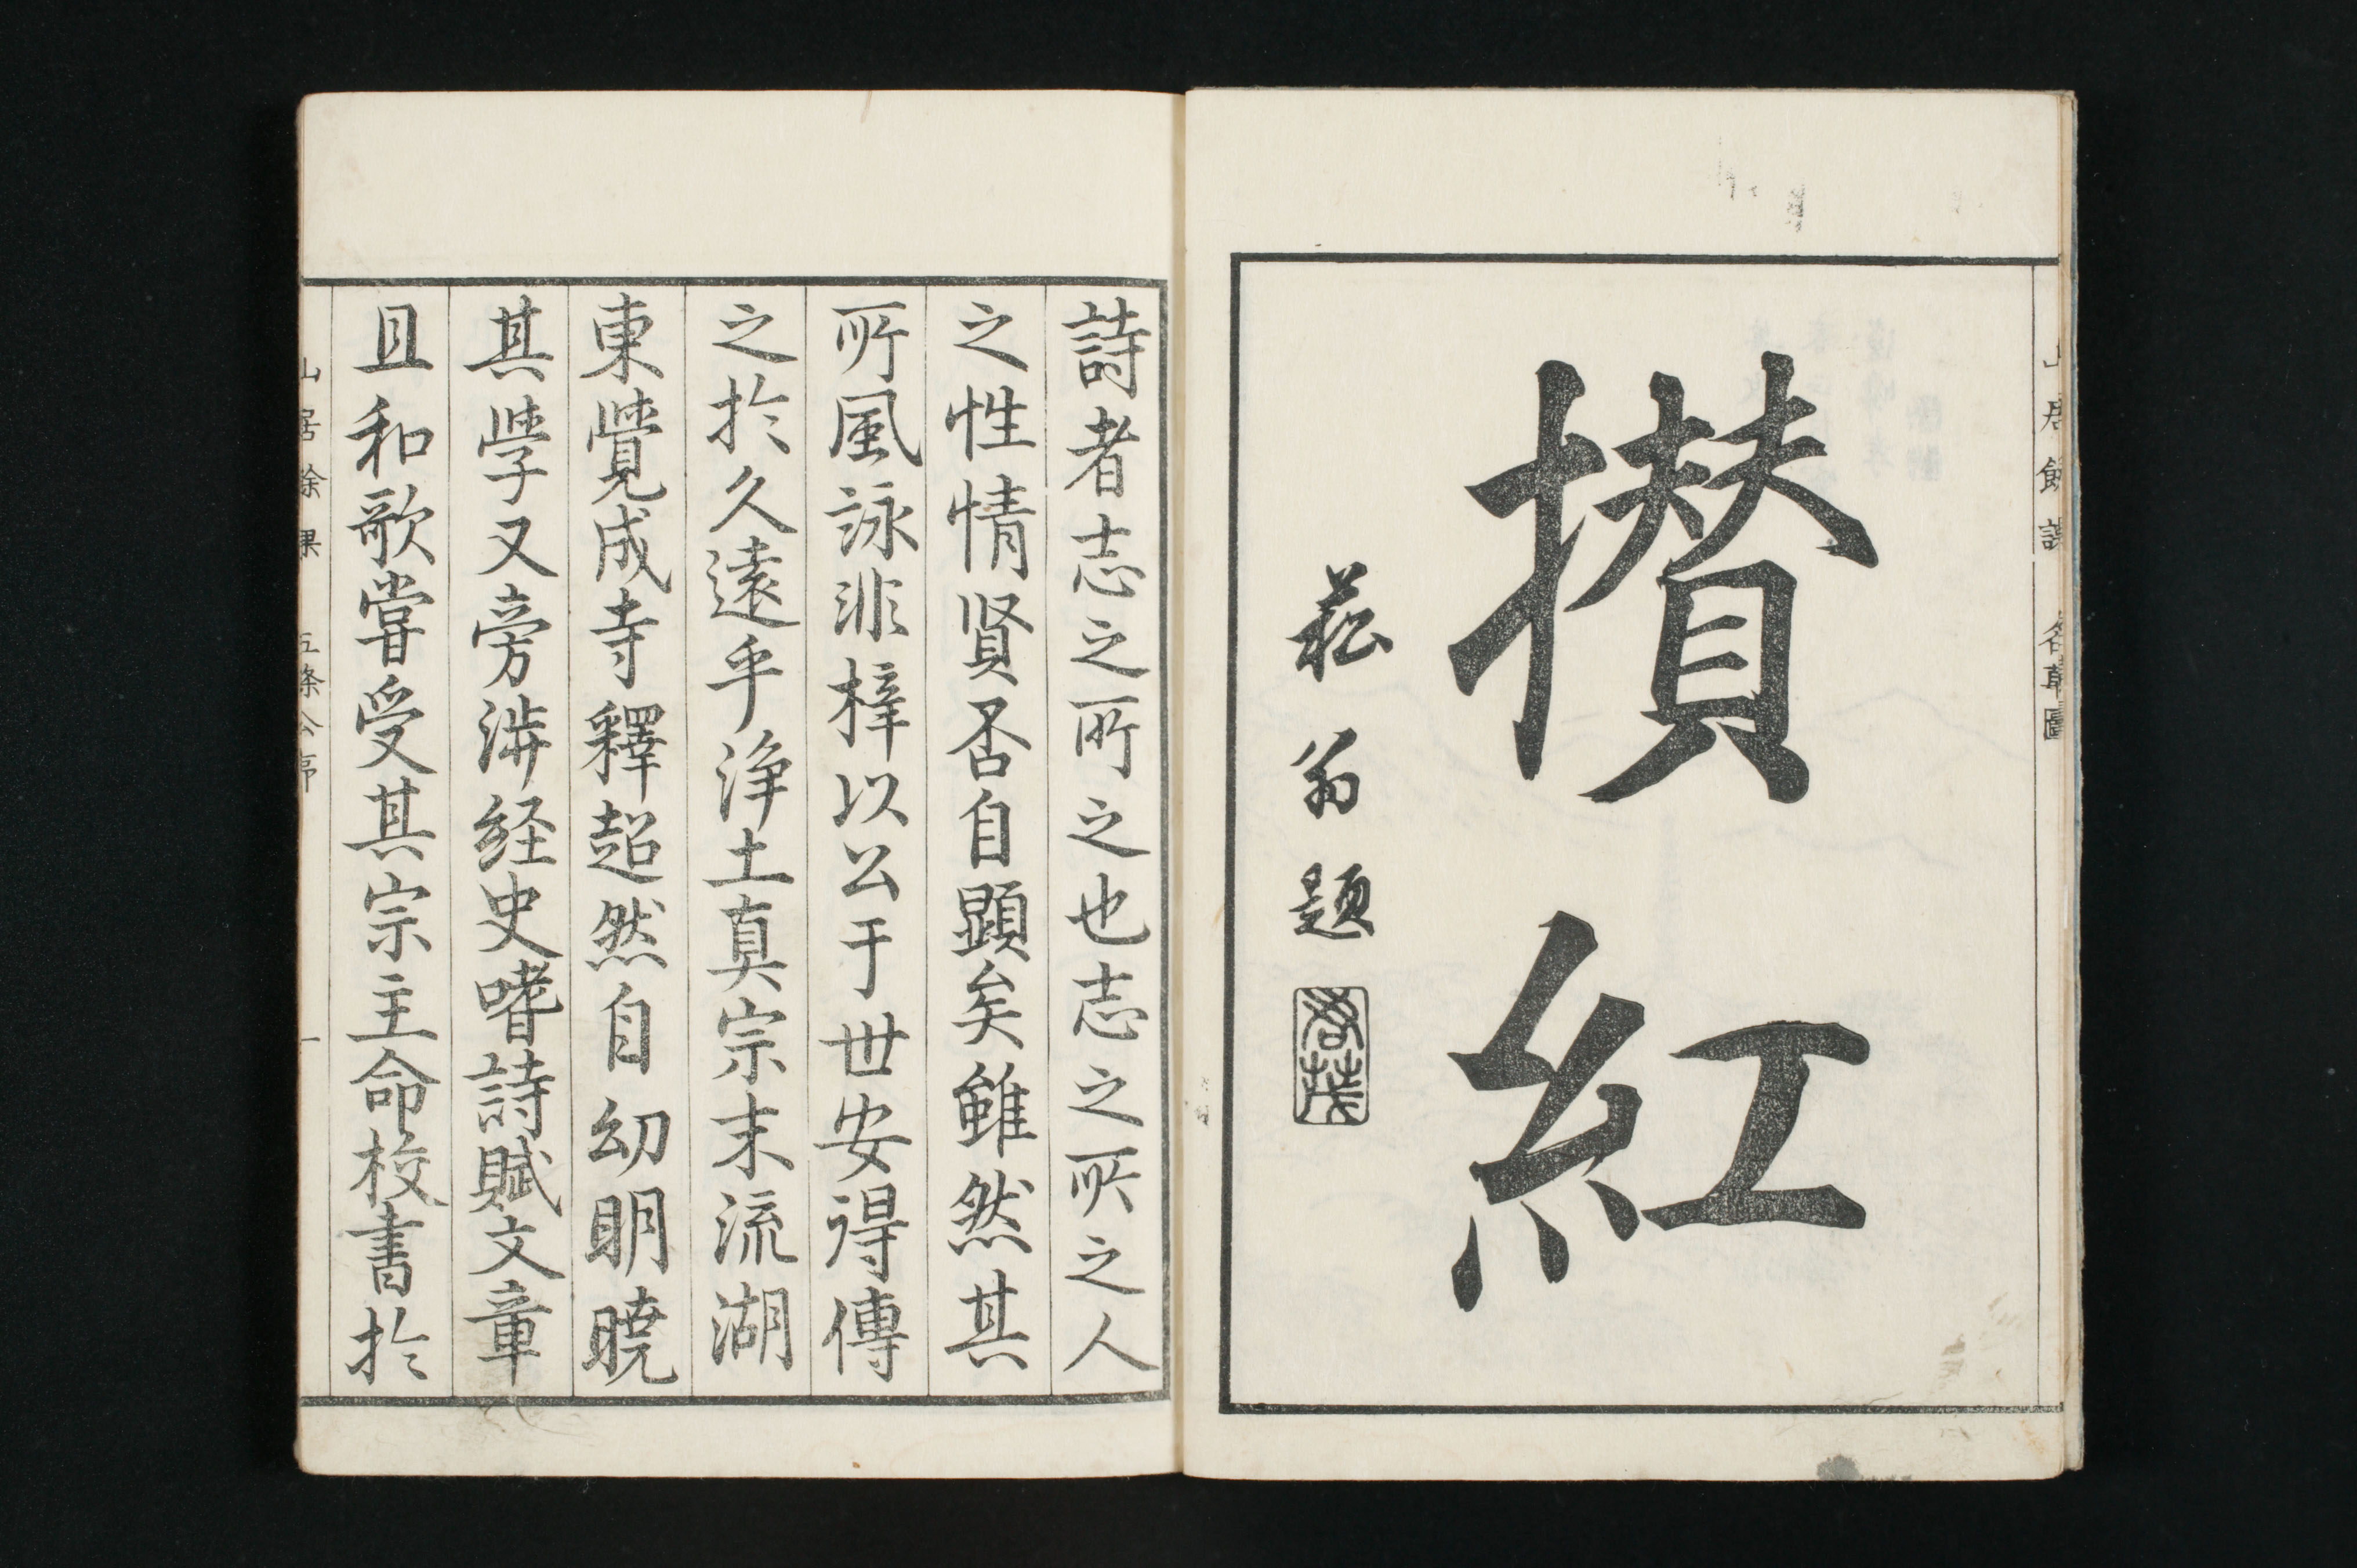 山居餘課 名華圖
攅紅
菘翁題
詩者志之所之也志之所之人
之性情賢否自顕矣雖然其
所風詠非梓以公于世安得傳
之於久遠乎浄土真宗末流湖
東覺成寺釋超然自幼明曉
其學又旁渉経史嗜詩賦文章
且和歌嘗受其宗主命校書於
山居餘課 五條公序 一